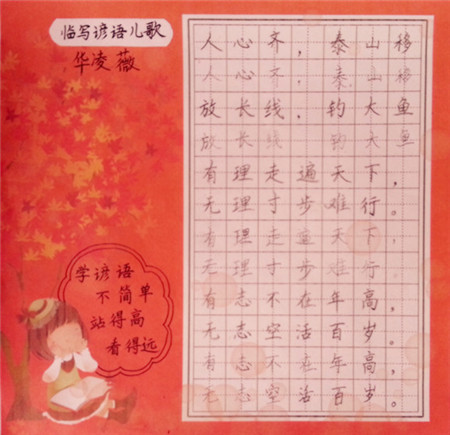 临写谚语儿歌
华凌薇
人心齐，泰山移
人心齐，泰山移
放长线，钓大鱼
放长线 钓大鱼
有理走遍天下，
无理寸步难行。
有理走遍天下，
无理寸步难行
有志不在年高，
无志空活百岁。
有志不在年高，
无志空活百岁。
学谚语
不简单
站得高
看得远